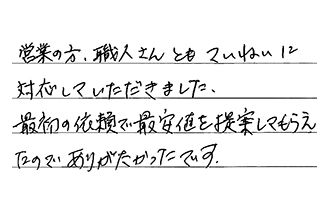 営業の方、職人さんともていねいに
対応していただきました、
最初の依頼で最安値を提案してもらえ
たのでありがたかったです.